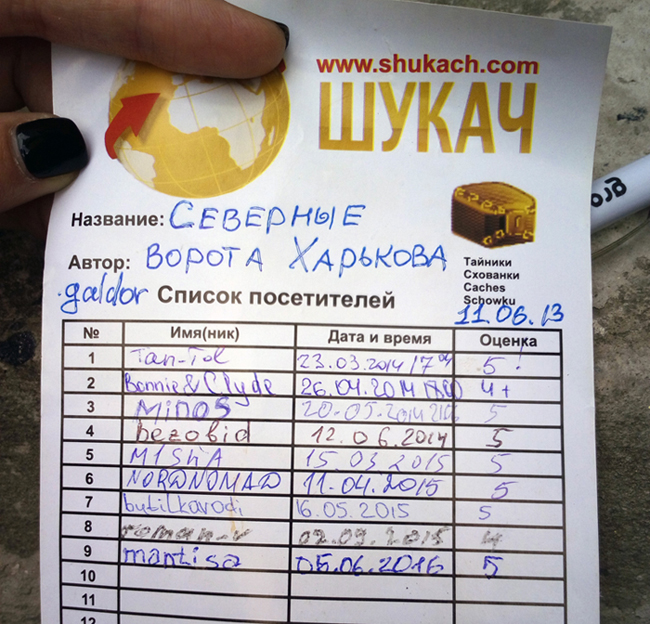 www.shukach.com
ШУКАЧ
Название: СЕВЕРНЫЕ
Автор: ВОРОТА ХАРЬКОВА
Тайники
Схованки
Caches
Schowku
galdor Список посетителей 11.06.13
№ Имя(ник) Дата и время Оценка
1 Tan-Tol 23.03.2014 17 04 5!
2 Bonnie&Clyde 26.04.2014 4+
3 Minos 20.05.2014 5
4 bezobid 12.06.2014 5
5 MISHA 15.03.2015 5
6 NORDNOMAD 11.04.2015 5
7 butilkavodi 16.05.2015 5
8 roman-v 02.09.2015 4
9 mantisa 05.06.2016 5
10
11
12